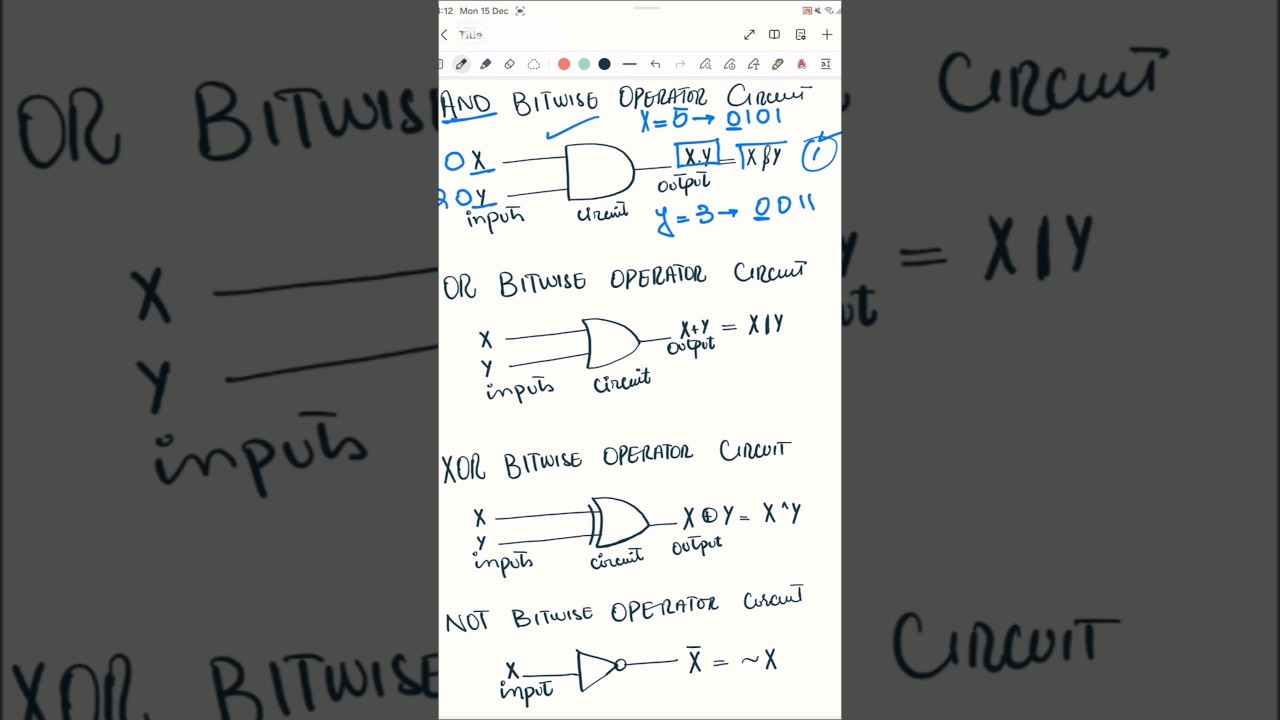 :12 Mon 15 Dec
Title
AND BITWISE OPERATOR CIRCUIT
X = 5 → 0101
0 X
X.Y = X & Y
1
output
20 Y
inputs
circuit
y = 3 → 0011
OR BITWISE OPERATOR CIRCUIT
X
X+Y = X|Y
output
Y
inputs
circuit
XOR BITWISE OPERATOR CIRCUIT
X
X ⊕ Y = X ^ Y
Y
output
inputs
circuit
NOT BITWISE OPERATOR CIRCUIT
X
X̅ = ~X
input
OR BITWISE
CIRCUIT
X
Y = X|Y
Y
inputs
XOR BITWISE
CIRCUIT